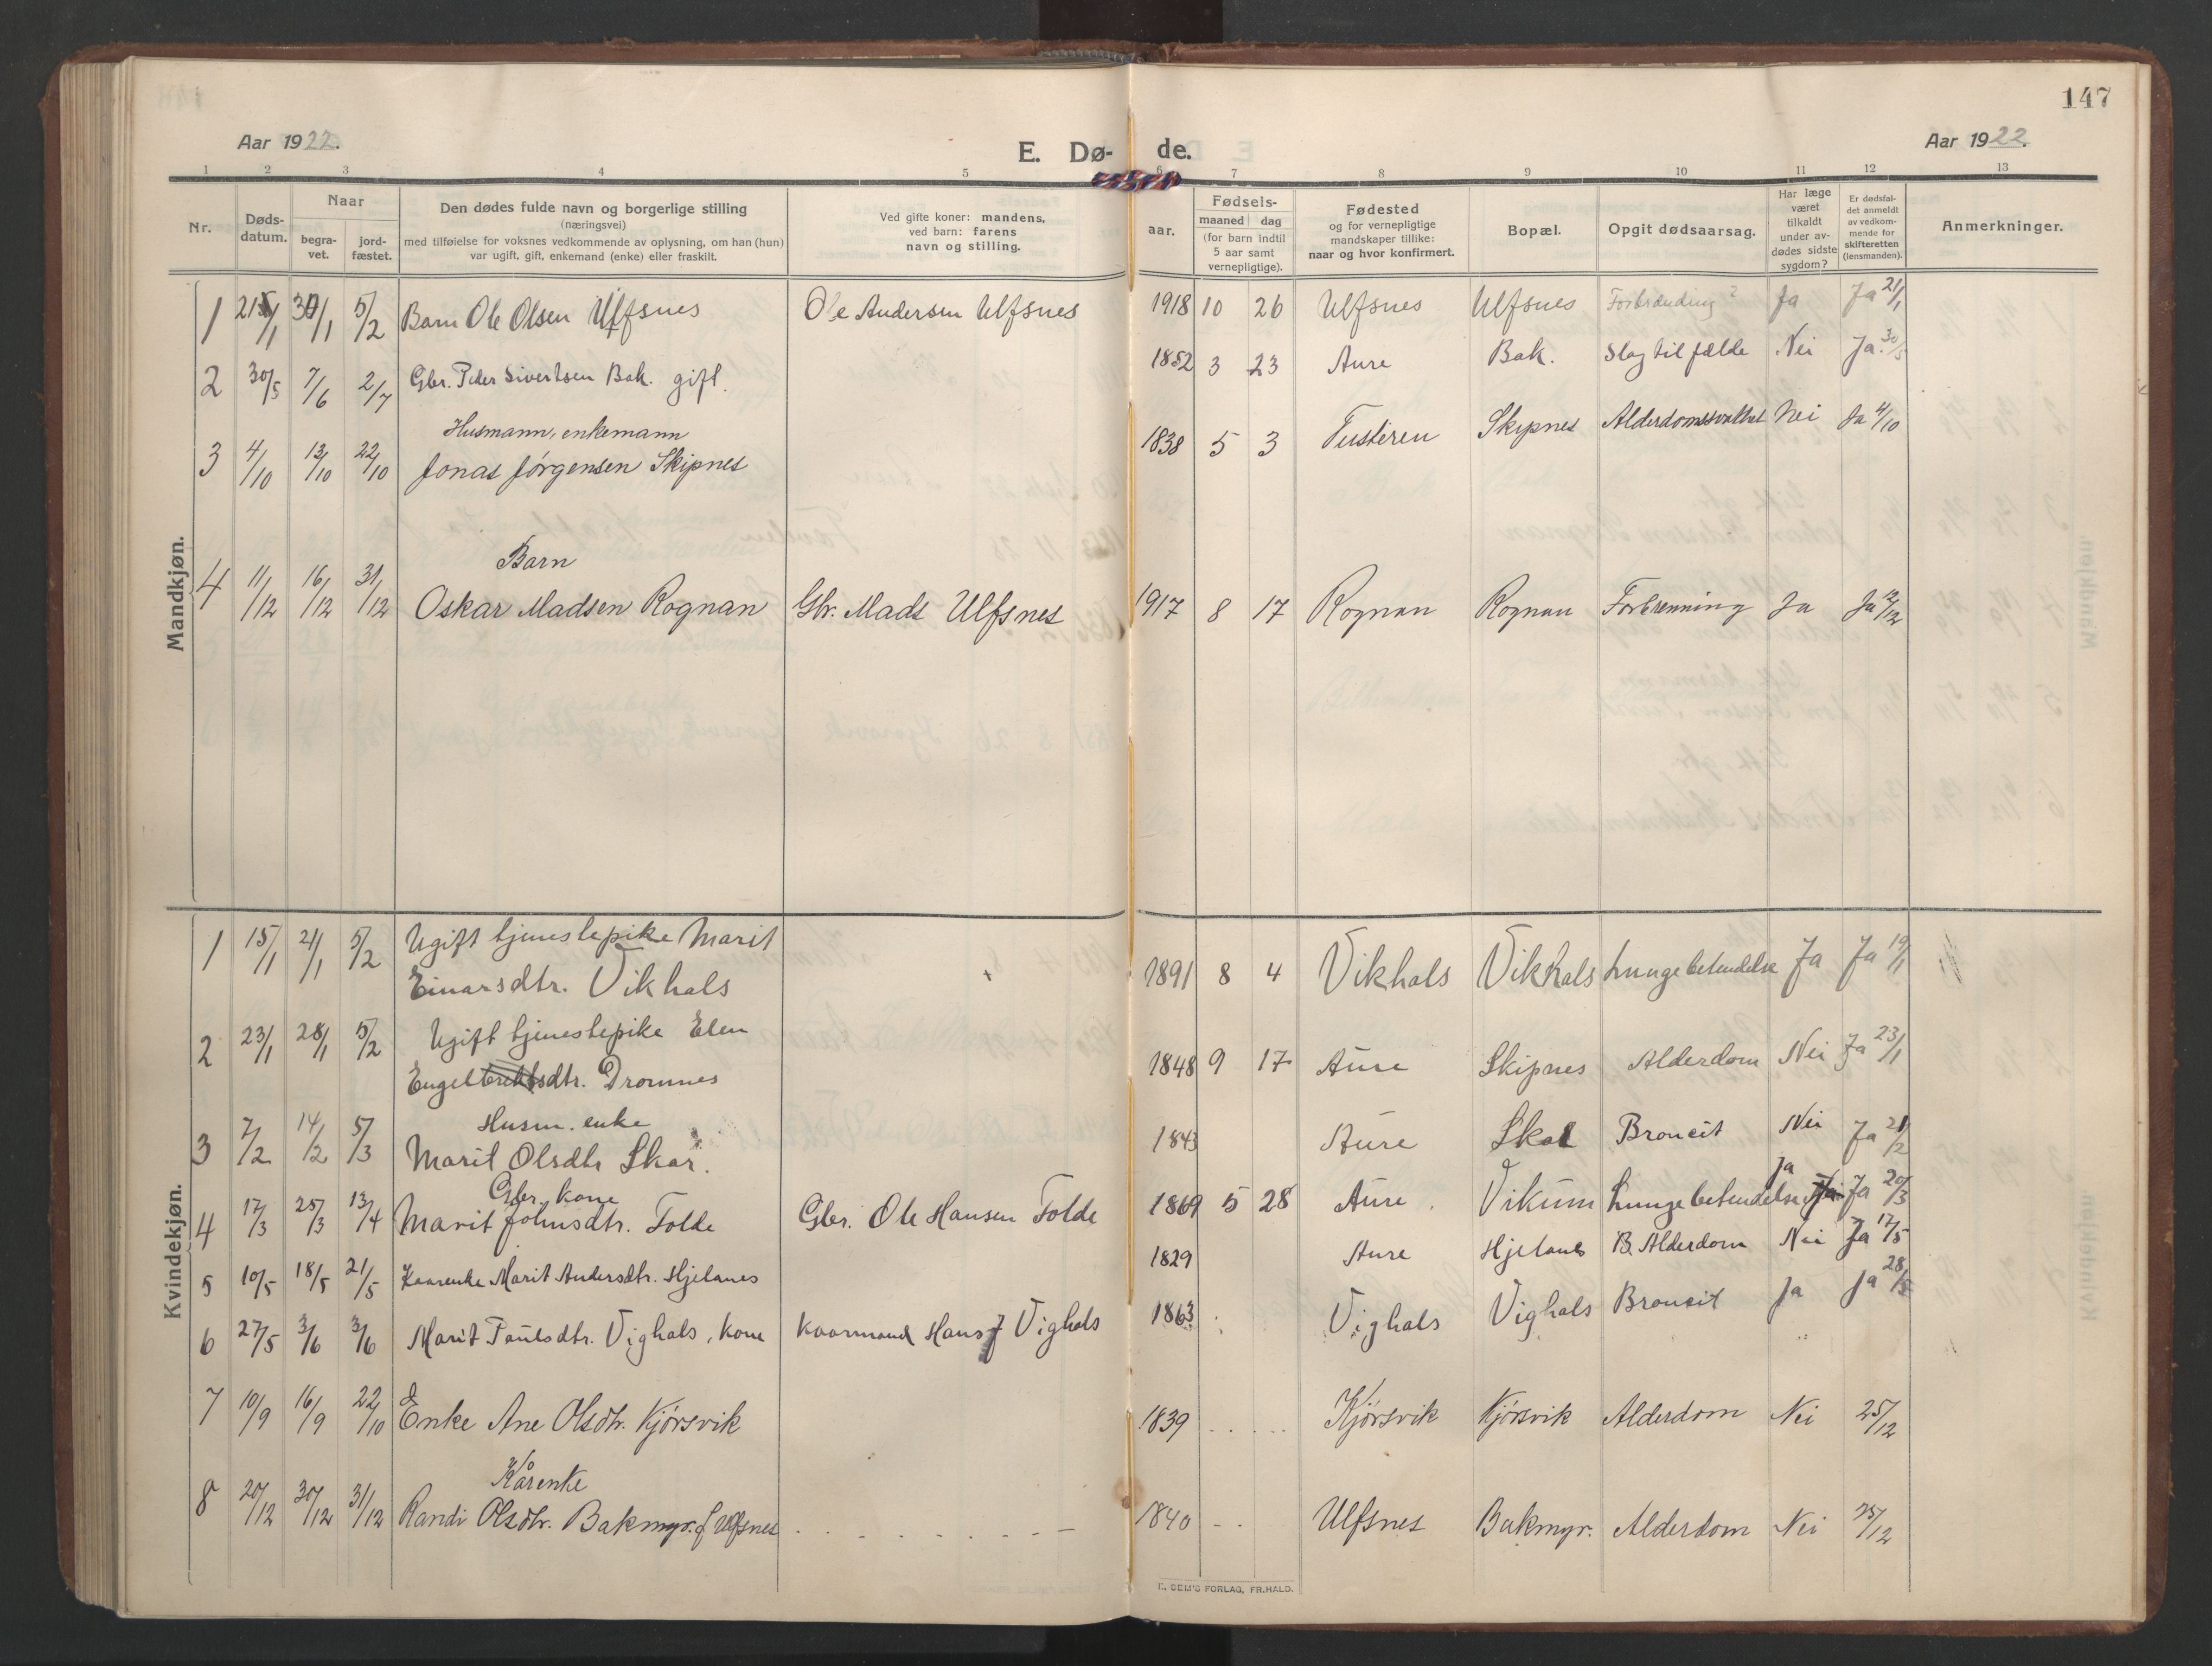 147
Aar 1922.
E. Dø- de.
Aar 1922.
1 2 3 4 5 6 7 8 9 10 11 12 13
Nr.
Døds-
datum.
Naar
begra-
vet.
jord-
fæstet.
Den dødes fulde navn og borgerlige stilling
(næringsvei)
med tilføielse for voksnes vedkommende av oplysning, om han (hun)
var ugift, gift, enkemand (enke) eller fraskilt.
Ved gifte koner: mandens,
ved barn: farens
navn og stilling.
Fødsels-
aar.
maaned dag
(for barn indtil
5 aar samt
vernepligtige).
Fødested
og for vernepligtige
mandskaper tillike:
naar og hvor konfirmert.
Bopæl.
Opgit dødsaarsag.
Har læge
været
tilkaldt
under av-
dødes sidste
sygdom?
Er dødsfal-
det anmeldt
av vedkom-
mende for
skifteretten
(lensmanden).
Anmerkninger.
Mandkjøn.
1 5/2 Barn Ole Olsen Ulfsnes Ole Andersen Ulfsnes 1918 10 26 Ulfsnes Ulfsnes Forbrænding? Ja Ja 21/1
2 30/5 7/6 2/7 Gbr. Peder Sivertsen Bak. gift. 1852 3 23 Aure Bak. Slagtilfælde Nei Ja. 30/5
Husmann, enkemann
3 4/10 13/10 22/10 Jonas Jørgensen Skipnes 1838 5 3 Tusteren Skipnes Nei Ja 4/10
Barn
4 11/12 16/12 31/12 Oskar Madsen Rognan Gbr. Mads Ulfsnes 1917 8 17 Rognan Rognan Forbrenning Ja Ja 12/12
Kvindekjøn.
1 15/1 21/1 5/2 Ugift tjenestepike Marit
Einarsdtr. Vikhals 1891 8 4 Vikhals Vikhals Lungebetendelse Ja Ja 19/1
2 23/1 28/1 5/2 Ugift tjenestepike Elen
Engelbrektsdtr. Dromnes 1848 9 17 Aure Skipnes Alderdom Nei Ja 23/1
Husm. enke
3 7/2 14/2 5/3 Marit Olsdtr Skar. 1843 Aure Skar Broncit Nei Ja 21/2
Gbr. kone
4 17/3 25/3 13/4 Marit Johnsdtr. Tolde Gbr. Ole Hansen Tolde 1869 5 28 Aure. Vikum Lungebetendelse Ja Ja 20/3
5 10/5 18/5 21/5 Kaarenke Marit Andersdtr. Hjelanes 1829 Aure Hjelanes B. Alderdom Nei Ja 17/5
6 27/5 3/6 3/6 Marit Paulsdtr. Vighals, kone Kaarmand Hans J Vighals 1863 Vighals Vighals Broncit Ja Ja 28/5
7 10/9 16/9 22/10 Enke Ane Olsdtr. Kjørsvik 1839 Kjørsvik Kjørsvik Alderdom Nei 25/12
Kårenke
8 20/12 30/12 31/12 Randi Olsdtr. Bakmyr. f. Ulfsnes 1840 Ulfsnes Bakmyr. Alderdom Nei 25/12
E. SEM'S FORLAG, FR.HALD.